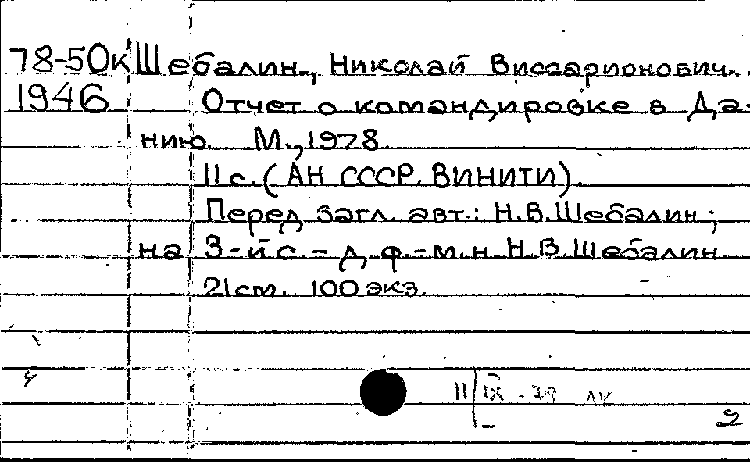 78-50к Шебалин, Николай Виссарионович.
1946 Отчет о командировке в Да-
нию. М., 1978.
11 с. (АН СССР. ВИНИТИ).
Перед загл. авт.: Н.В.Шебалин;
на 3-й с. - д.ф.-м.н. Н.В.Шебалин.
21 см. 100 экз.
11/IX-78
2